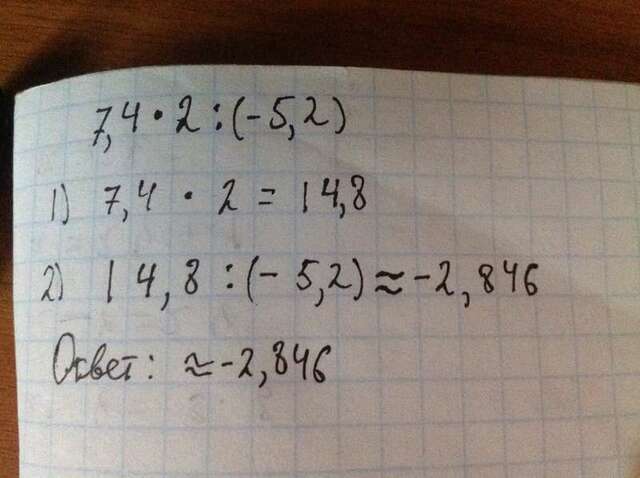 7,4 • 2 : (-5,2)
1) 7,4 • 2 = 14,8
2) 14,8 : (-5,2) ≈ -2,846
Ответ: ≈ -2,846